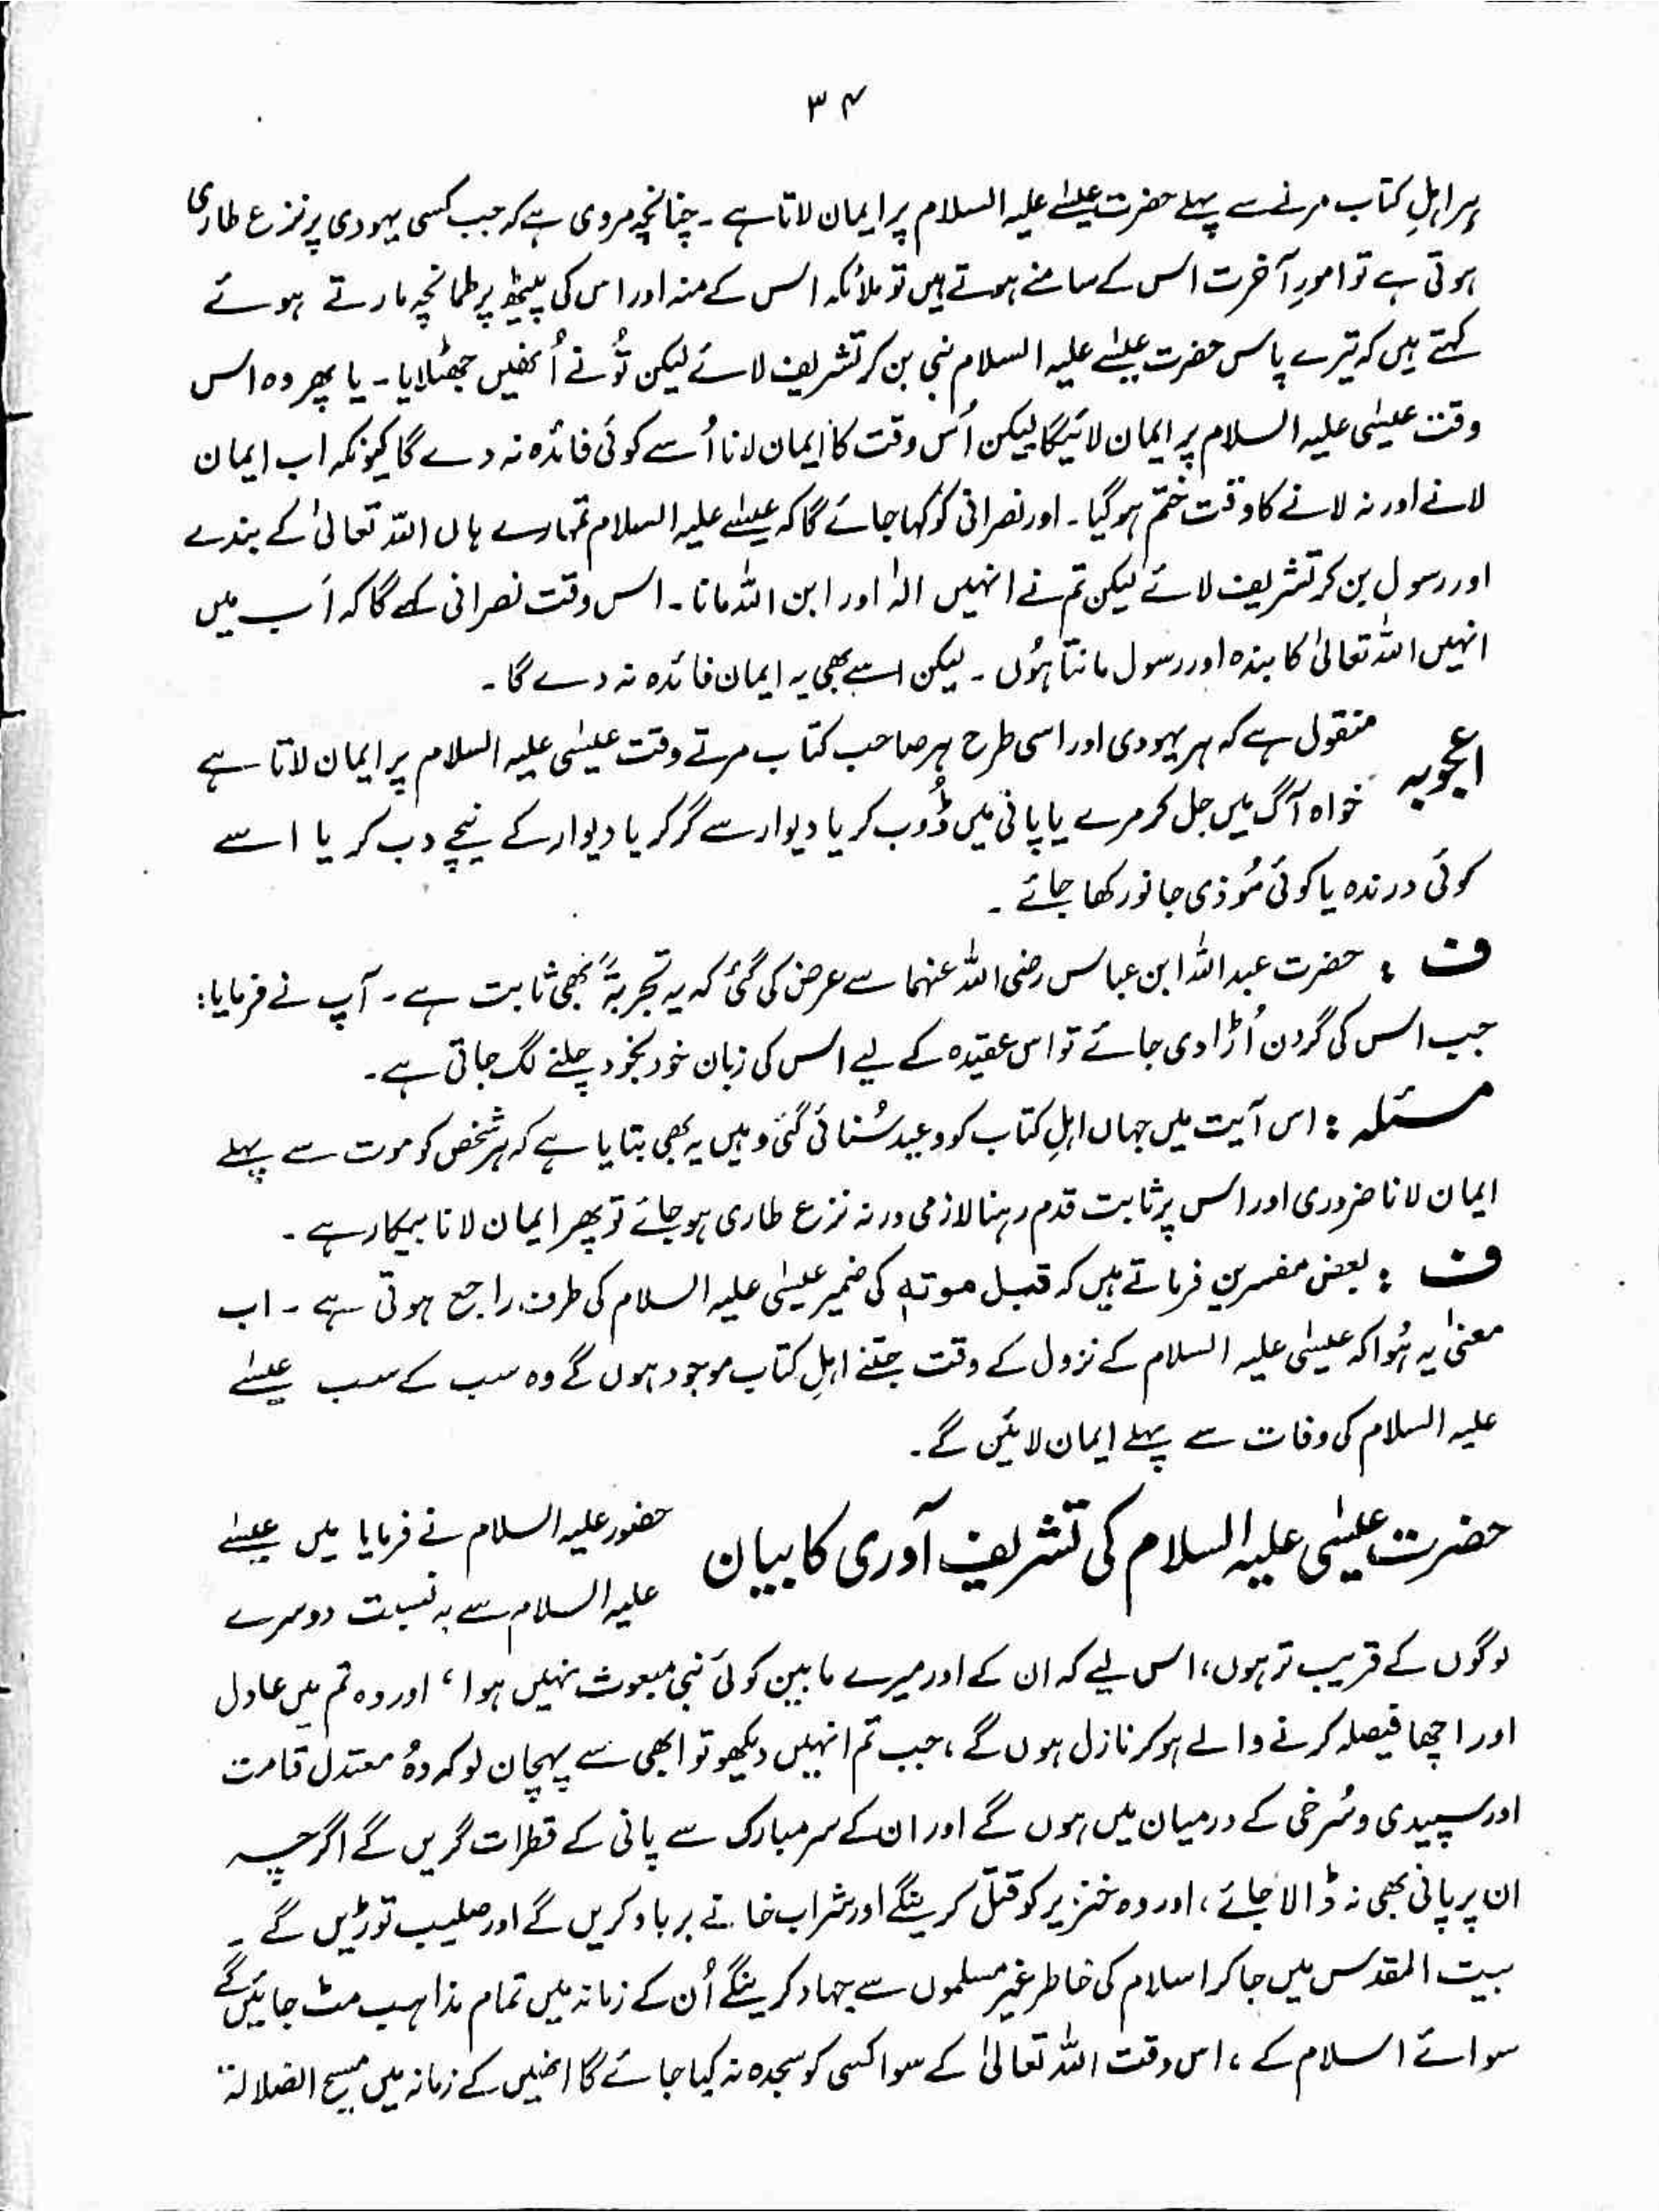 ۳۴
ہر اہلِ کتاب مرنے سے پہلے حضرت عیسٰے علیہ السلام پر ایمان لاتا ہے ۔ چنانچہ مروی ہے کہ جب کسی یہودی پر نزع طاری
ہوتی ہے تو امورِ آخرت اس کے سامنے ہوتے ہیں تو ملائکہ اس کے منہ اور اس کی پیٹھ پر طمانچہ مارتے ہوئے
کہتے ہیں کہ تیرے پاس حضرت عیسٰے علیہ السلام نبی بن کر تشریف لائے لیکن تُو نے اُنھیں جھٹلایا ۔ یا پھر وہ اس
وقت عیسٰی علیہ السلام پر ایمان لائیگا لیکن اُس وقت کا ایمان لانا اُسے کوئی فائدہ نہ دے گا کیونکہ اب ایمان
لانے اور نہ لانے کا وقت ختم ہو گیا ۔ اور نصرانی کو کہا جائے گا کہ عیسٰے علیہ السلام تمہارے ہاں اللہ تعالیٰ کے بندے
اور رسول بن کر تشریف لائے لیکن تم نے انہیں الٰہ اور ابن اللہ مانا ۔ اس وقت نصرانی کہے گا کہ اَب میں
انہیں اللہ تعالیٰ کا بندہ اور رسول مانتا ہُوں ۔ لیکن اسے بھی یہ ایمان فائدہ نہ دے گا ۔
اعجوبہ منقول ہے کہ ہر یہودی اور اسی طرح ہر صاحب کتاب مرتے وقت عیسٰی علیہ السلام پر ایمان لاتا ہے
خواہ آگ میں جل کر مرے یا پانی میں ڈُوب کر یا دیوار سے گر کر یا دیوار کے نیچے دب کر یا اسے
کوئی درندہ یا کوئی مُوذی جانور کھا جائے ۔
ف : حضرت عبد اللہ ابن عباس رضی اللہ عنہما سے عرض کی گئی کہ یہ تجربۃً بھی ثابت ہے ۔ آپ نے فرمایا :
جب اس کی گردن اُڑا دی جائے تو اس عقیدہ کے لیے اس کی زبان خود بخود چلنے لگ جاتی ہے ۔
مسئلہ : اس آیت میں جہاں اہلِ کتاب کو وعید سُنائی گئی وہیں یہ بھی بتایا ہے کہ ہر شخص کو موت سے پہلے
ایمان لانا ضروری اور اس پر ثابت قدم رہنا لازمی ورنہ نزع طاری ہو جائے تو پھر ایمان لانا بیکار ہے ۔
ف : بعض مفسرین فرماتے ہیں کہ قبل موتہٖ کی ضمیر عیسٰی علیہ السلام کی طرف راجع ہوتی ہے ۔ اب
معنیٰ یہ ہُوا کہ عیسٰی علیہ السلام کے نزول کے وقت جتنے اہلِ کتاب موجود ہوں گے وہ سب کے سب عیسٰے
علیہ السلام کی وفات سے پہلے ایمان لائیں گے ۔
حضرت عیسٰی علیہ السلام کی تشریف آوری کا بیان حضور علیہ السلام نے فرمایا میں عیسٰے
علیہ السلام سے بہ نسبت دوسرے
لوگوں کے قریب تر ہوں ، اس لیے کہ ان کے اور میرے مابین کوئی نبی مبعوث نہیں ہوا ، اور وہ تم میں عادل
اور اچھا فیصلہ کرنے والے ہو کر نازل ہوں گے ، جب تم انہیں دیکھو تو ابھی سے پہچان لو کہ وہُ معتدل قامت
اور سپیدی و سُرخی کے درمیان میں ہوں گے اور ان کے سر مبارک سے پانی کے قطرات گریں گے اگرچہ
ان پر پانی بھی نہ ڈالا جائے ، اور وہ خنزیر کو قتل کرینگے اور شراب خانے برباد کریں گے اور صلیب توڑیں گے ۔
بیت المقدس میں جا کر اسلام کی خاطر غیر مسلموں سے جہاد کرینگے اُن کے زمانہ میں تمام مذاہب مٹ جائیں گے
سوائے اسلام کے ، اس وقت اللہ تعالیٰ کے سوا کسی کو سجدہ نہ کیا جائے گا انھیں کے زمانہ میں مسیح الضلالۃ